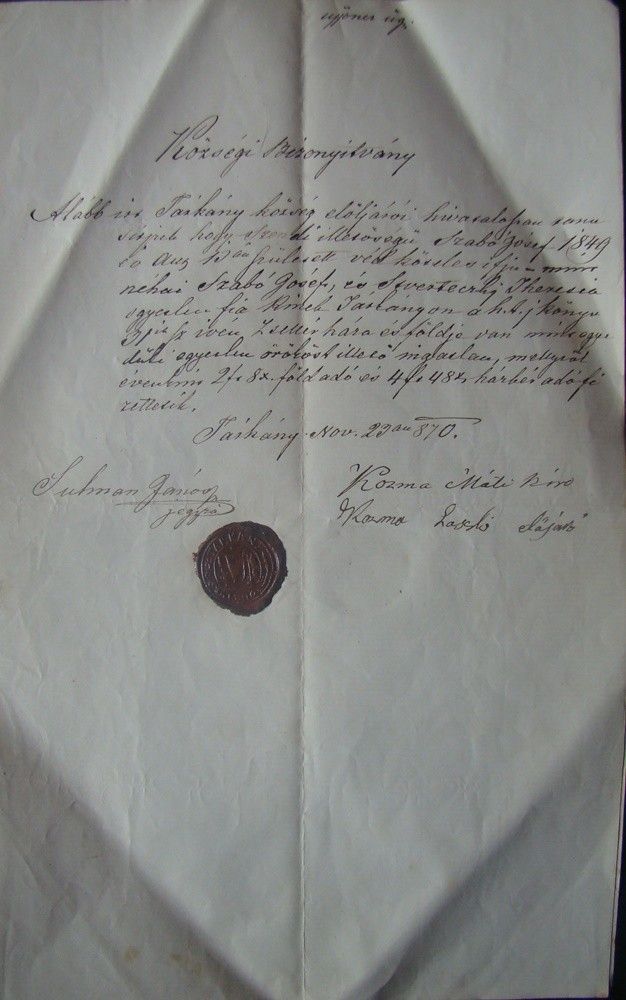 Községi Bizonyitvány
Alább irt Tárkány község elöljárói hivatalossan tanu
sitjuk hogy Szendi illetöségü Szabó Josef 1849
év Aug 15én született védköteles ifju
néhai Szabó Josef, és Theresia
egyetlen fia kinek Tárkányon a h.t.j könyv
iven Zsellér háza és földje van mint egye
düli egyetlen örököst illető ingatlan, mellytöl
évenkint 2 f 8 x föld adó és 4 f 48 x házbér adó fi
zettetik.
Tárkány Nov. 29án 870.
Sulman János
jegyző
Kozma Máté Biró
Kozma László előljáró